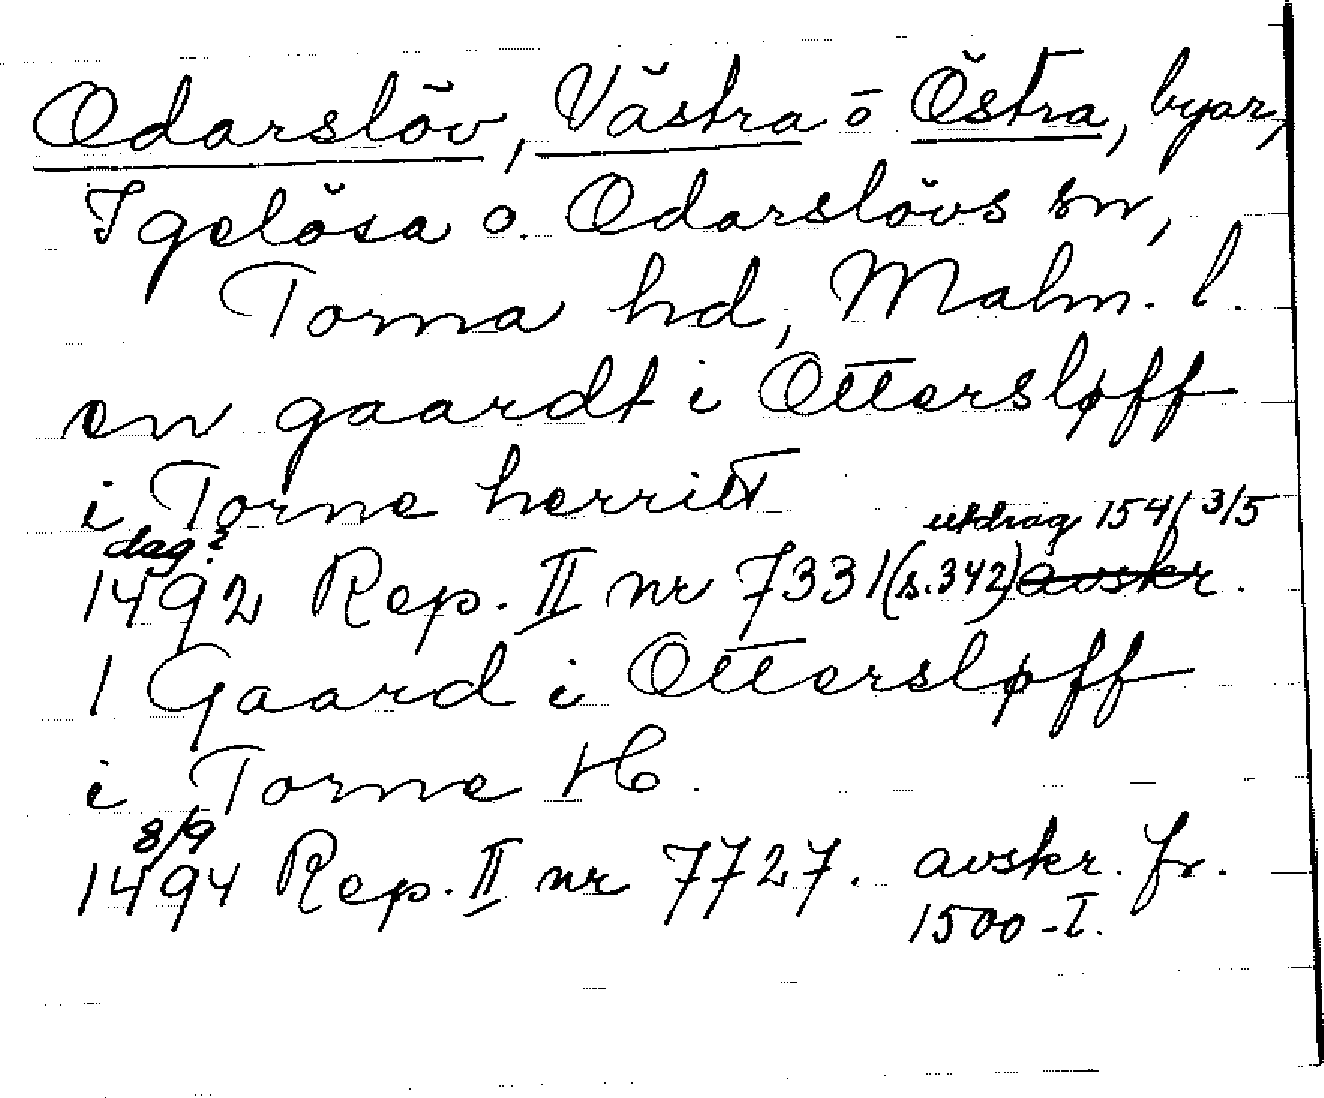 Odarslöv, Västra o Östra, byar,
Igelösa o. Odarslövs sn,
Torna hd, Malm. l.
en gaardt i Ottersløff
i Torne herritt
dag? utdrag 1541 3/5
1492 Rep. II nr 7331 (s. 342) avskr.
1 Gaard i Ottersløff
i Torne H.
8/9
1494 Rep. II nr 7727. avskr. fr.
1500-t.